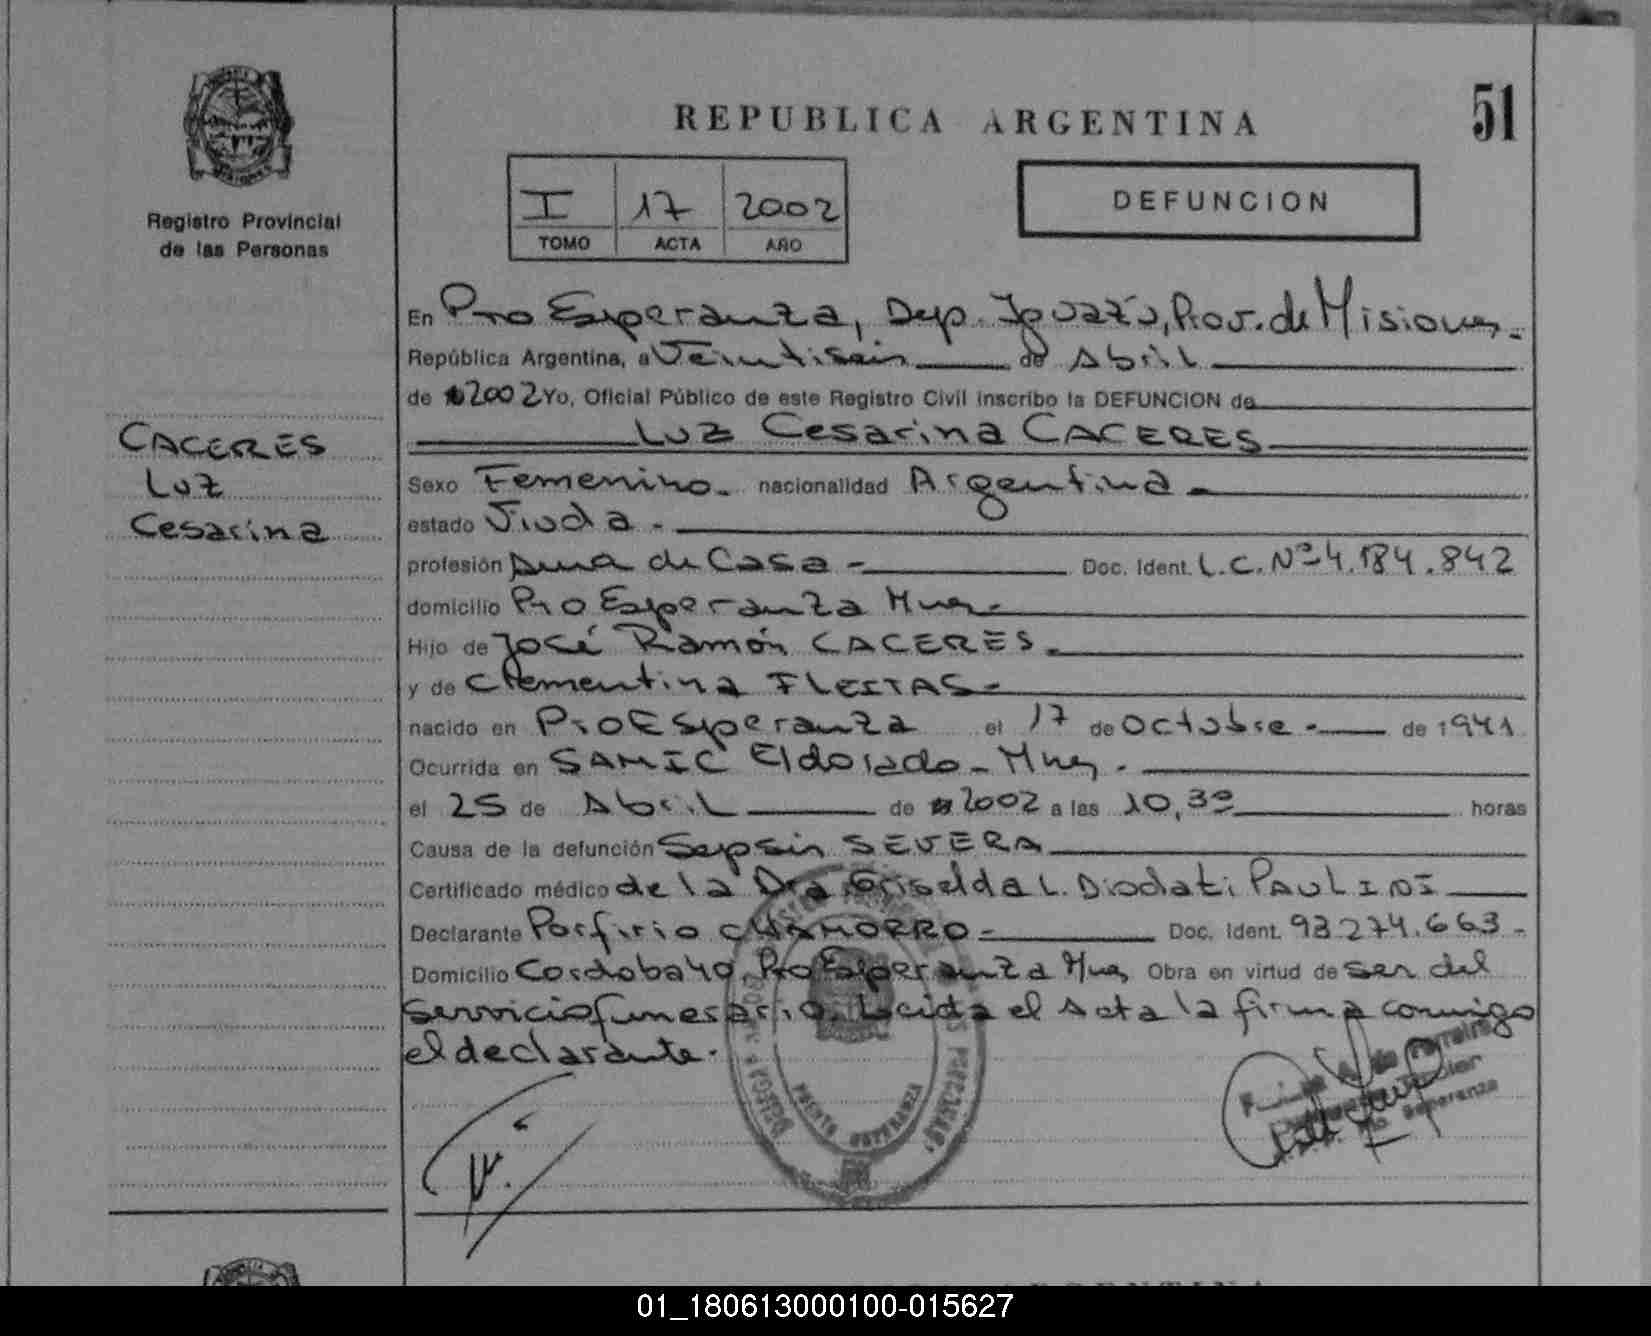 REPUBLICA ARGENTINA
51
Registro Provincial
de las Personas
I 17 2002
TOMO ACTA AÑO
DEFUNCION
En Pto Esperanza, Dep. Iguazú, Prov. de Misiones.
República Argentina, a Veintiseis de Abril
de 2002 Yo, Oficial Público de este Registro Civil inscribo la DEFUNCION de
Luz Cesarina CACERES
CACERES
Luz
Cesarina
Sexo Femenino. nacionalidad Argentina
estado Viuda.
profesión Ama de Casa - Doc. Ident. L.C. Nº 4.184.842
domicilio Pto Esperanza Mnes
Hijo de José Ramón CACERES.
y de Clementina FLEITAS-
nacido en Pto Esperanza el 17 de Octubre - de 1941
Ocurrida en SAMIC Eldorado - Mnes.
el 25 de Abril de 2002 a las 10,30 horas
Causa de la defunción Sepsis SEVERA
Certificado médico de la Dra Griselda L. Diodati PAULINI
Declarante Porfirio CHAMORRO - Doc. Ident. 93.274.663-
Domicilio Cordoba 40, Pto Esperanza Mnes Obra en virtud de ser del
Servicio funerario. Leida el acta la firma conmigo
el declarante.
PUERTO ESPERANZA
Esperanza
ARGENTINA
01_180613000100-015627